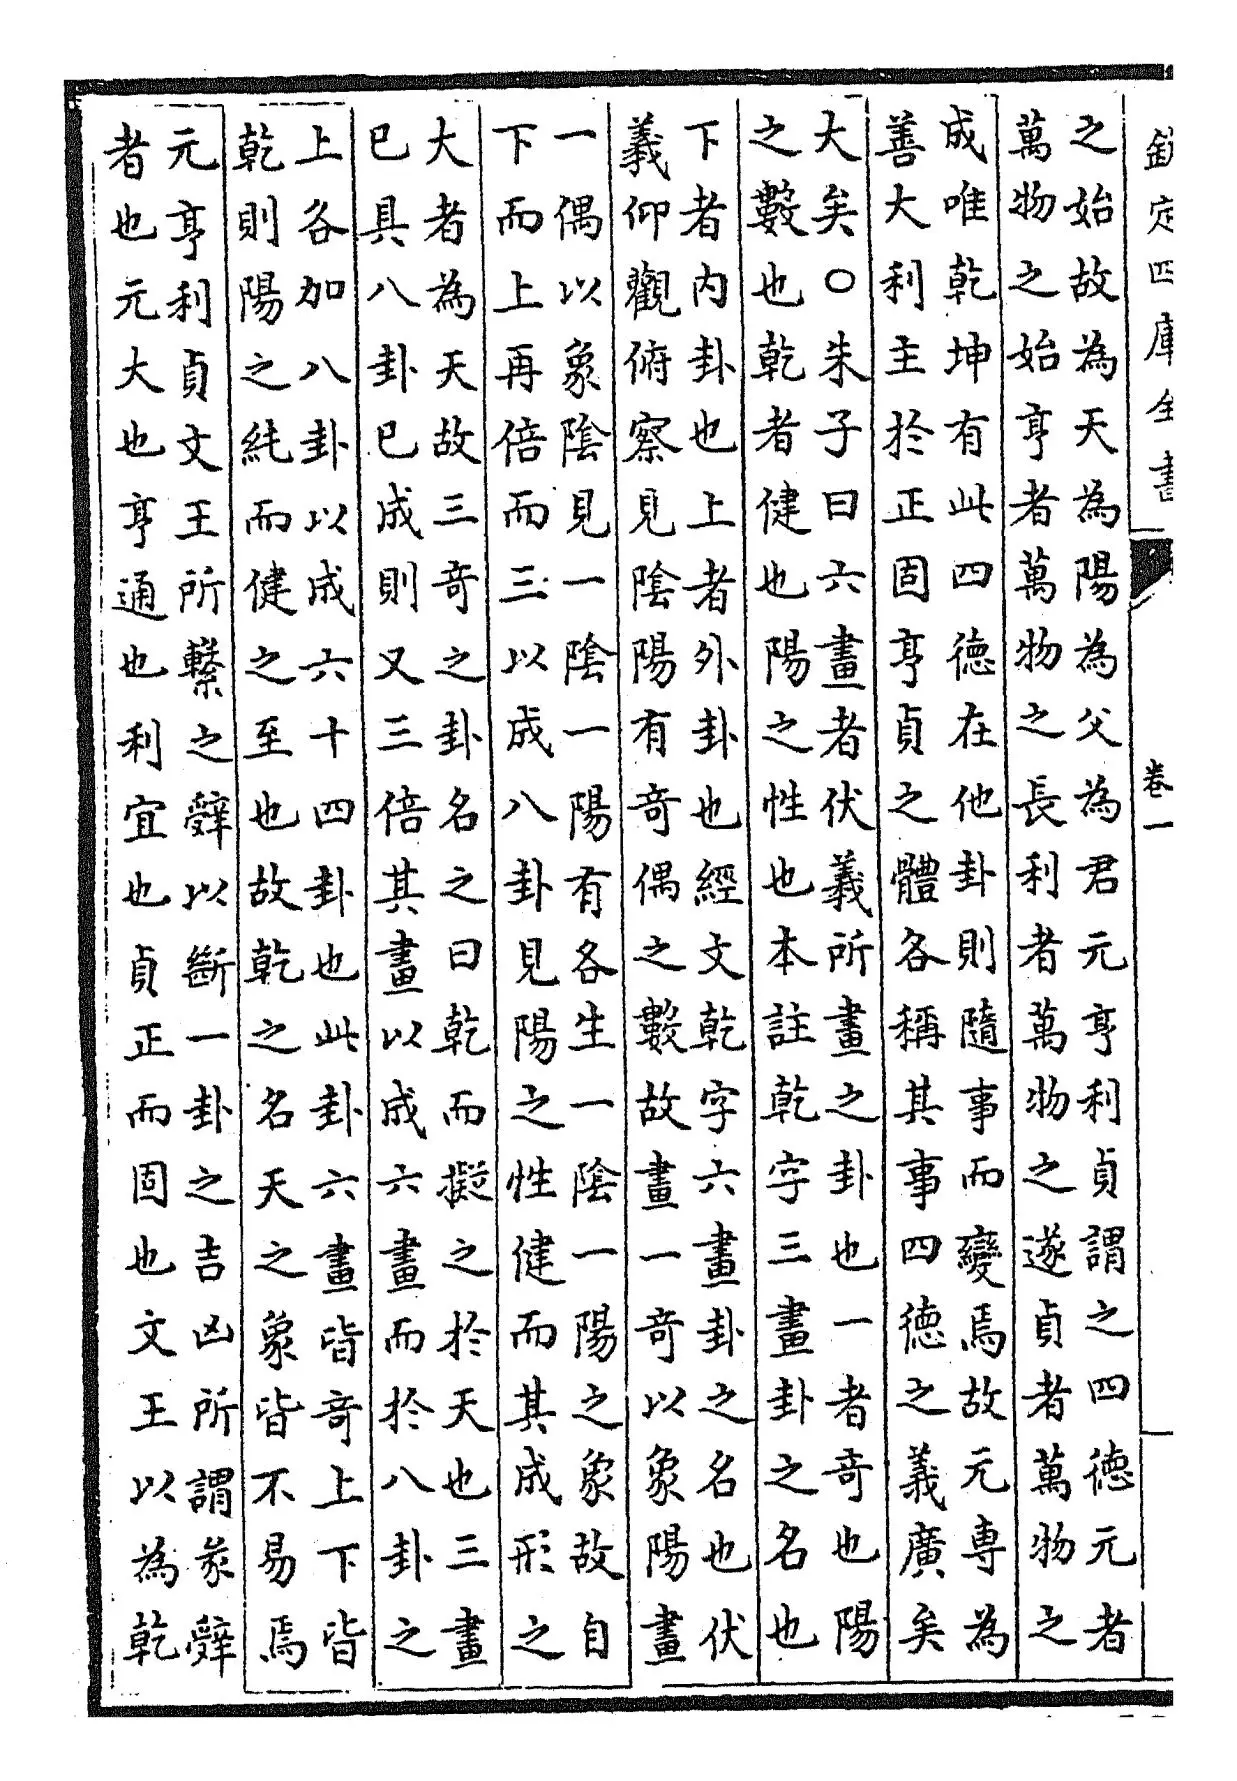 欽定四庫全書
卷一
之始故為天為陽為父為君元亨利貞謂之四德元者
萬物之始亨者萬物之長利者萬物之遂貞者萬物之
成唯乾坤有此四德在他卦則隨事而變焉故元專為
善大利主於正固亨貞之體各稱其事四德之義廣矣
大矣○朱子曰六畫者伏羲所畫之卦也一者奇也陽
之數也乾者健也陽之性也本註乾字三畫卦之名也
下者內卦也上者外卦也經文乾字六畫卦之名也伏
義仰觀俯察見陰陽有奇偶之數故畫一奇以象陽畫
一偶以象陰見一陰一陽有各生一陰一陽之象故自
下而上再倍而三以成八卦見陽之性健而其成形之
大者為天故三奇之卦名之曰乾而擬之於天也三畫
已具八卦已成則又三倍其畫以成六畫而於八卦之
上各加八卦以成六十四卦也此卦六畫皆奇上下皆
乾則陽之純而健之至也故乾之名天之象皆不易焉
元亨利貞文王所繫之辭以斷一卦之吉凶所謂彖辭
者也元大也亨通也利宜也貞正而固也文王以為乾